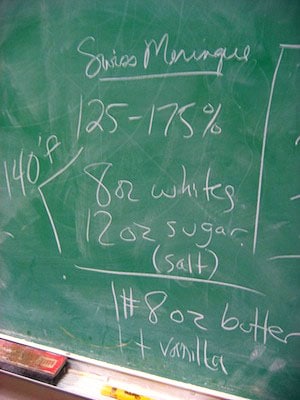 Swiss Meringue
125-175%
140°F
8oz whites
12oz sugar
(salt)
1# 8oz butter
+ vanilla